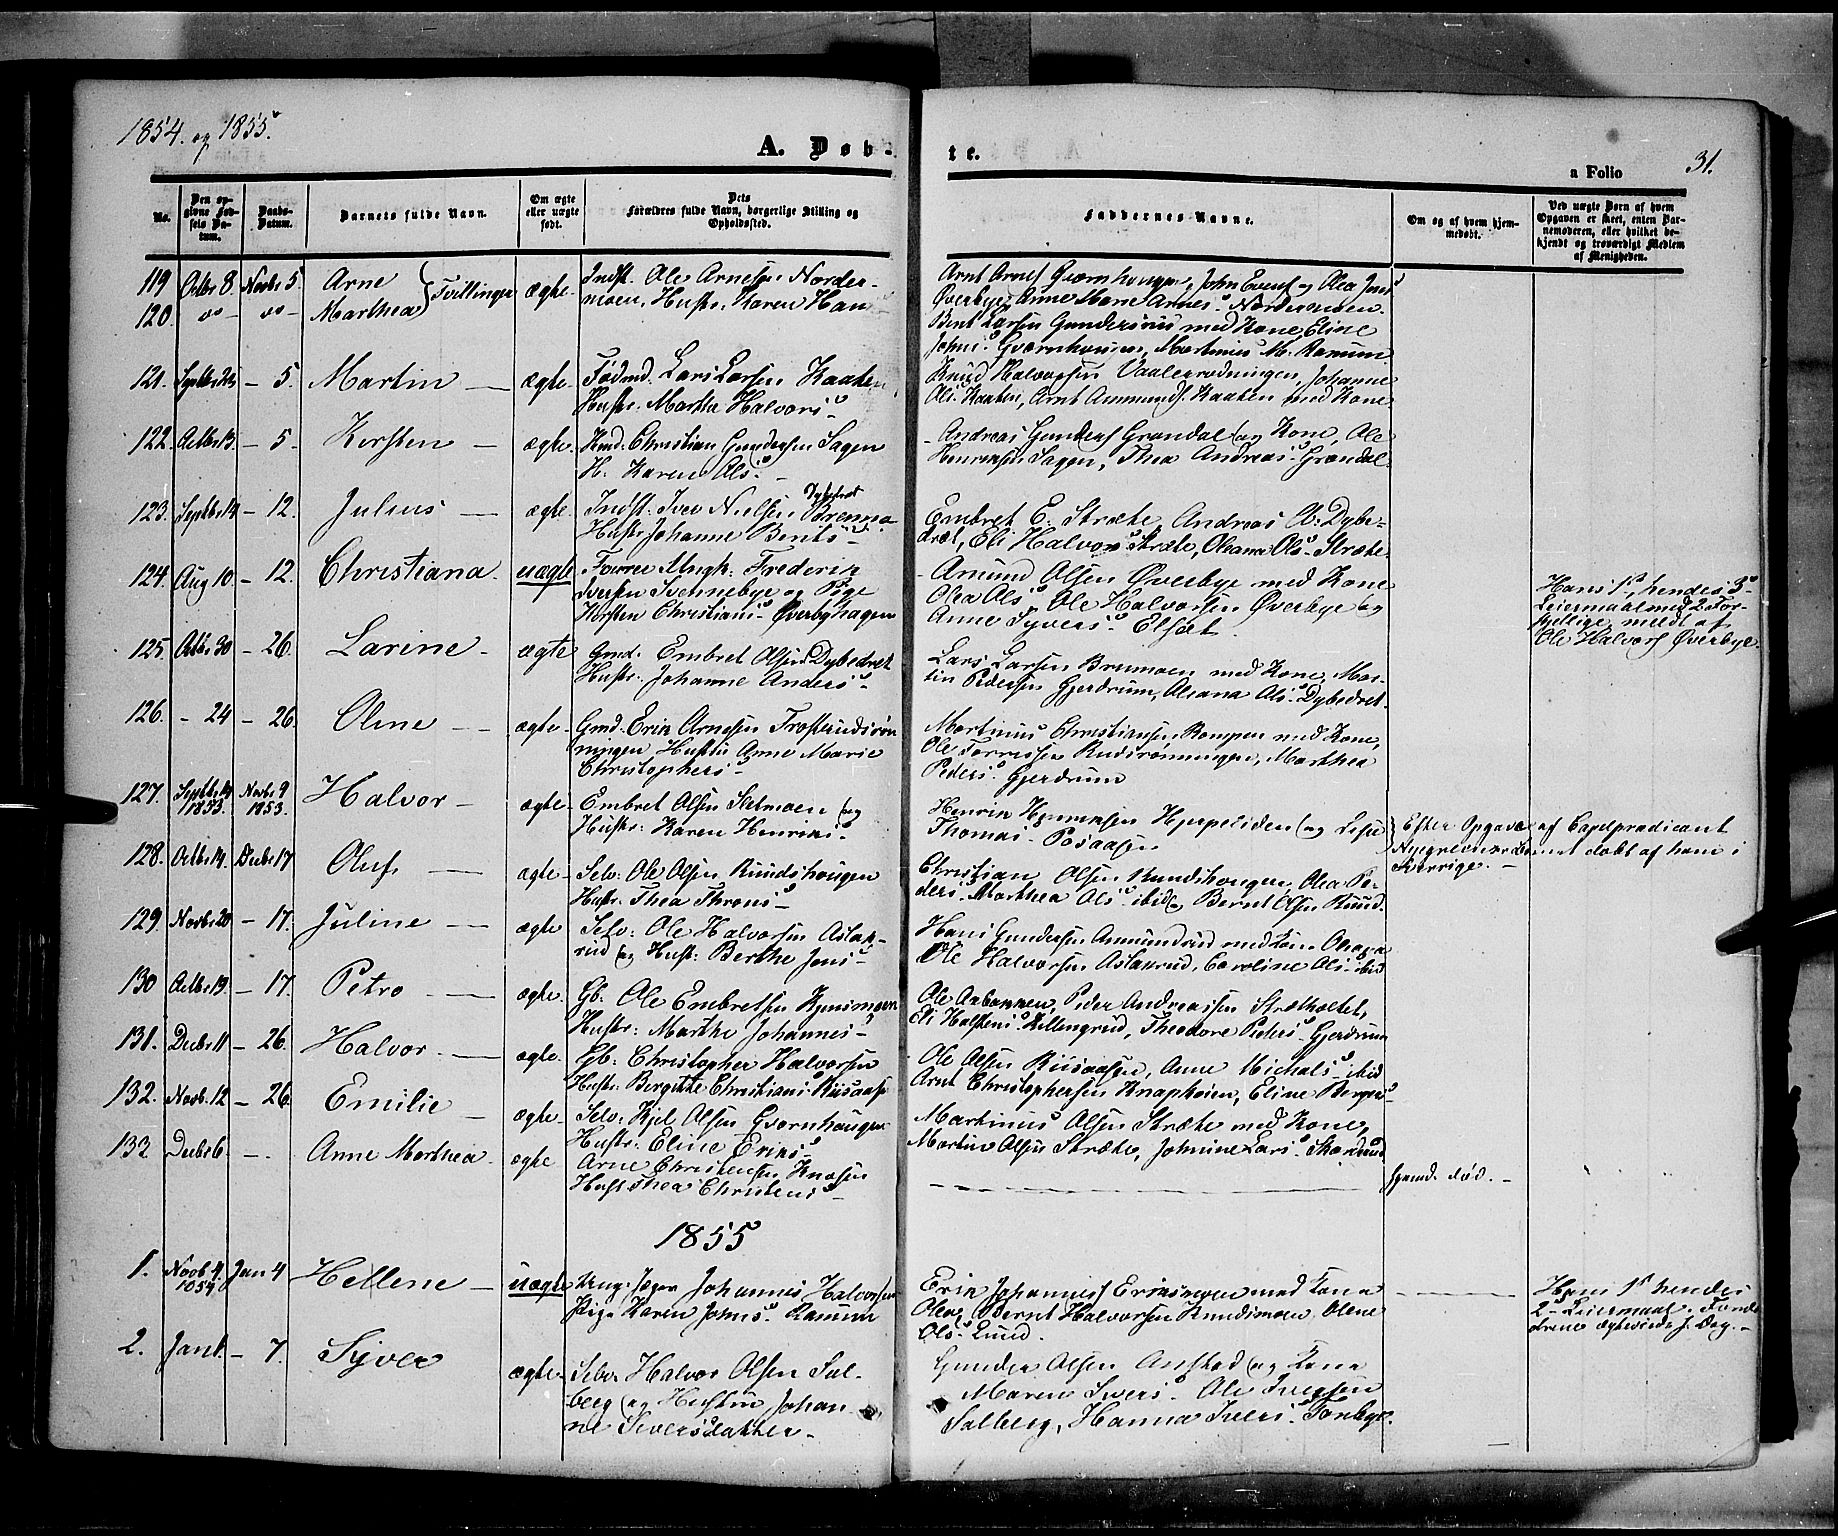 1854. og 1855.
A. Døb-
te.
a Folio
31.
No.
Den op-
givne Fød-
sels Da-
tum.
Daabs-
Datum.
Barnets fulde Navn.
Om ægte
eller uægte
født.
Dets
Forældres fulde Navn, borgerlige Stilling og
Opholdssted.
Faddernes Navne.
Om og af hvem hjem-
medøbt.
Ved uægte Børn af hvem
Opgaven er skeet, enten Bar-
nemoderen, eller hvilket be-
kjendt og troværdigt Medlem
af Menigheden.
119 Octbr 8. Novbr 5. Arne Tvillinger ægte Indst. Ole Arnesen Norder-
120. Marthea moen, Hustr. Karen Han
Arnt Arnes Qværnhougen, John Evens og Olea Jens
Øverbye, Anne Marie Arnes. Nordermoen.
Bent Larsen Gundersrud med Kone Eline
Johns. Gværnhougen, Martinius M. Ramum
121. Septbr 25 - 5. Martin ægte Fødmd. Lars Larsen Kaaten
Hustr. Marthe Halvors.
Knud Halvorsen Vaalerrødningen, Johanne
Ols. Kaaten, Arnt Ammunds. Kaaten med Kone.
122. Octbr 13. - 5. Kirsten ægte Hmd. Christian Gundersen Sagen
H. Karen Ols.
Andreas Gunders Grøndal og Kone, Ole
Henriksen Sagen, Thea Andreas. Grøndal.
123. Septbr 14 - 12. Julius ægte. Indst. Iver Nielsen Brenna
Dybedræt
Hustr. Johanne Berits.
Embret E. Stræte, Andreas O. Dybe-
dræt, Eli Halvors Stræte, Oleana Ols. Stræte.
124. Aug 10 - 12. Christiana. uægte Ungk. Frederik
Iversen Svennebye og Pige
Kirsten Christians. Øverbyhagen
Amund Olsen Øverbye med Kone
Olea Ols. Ole Halvorsen Øverbye og
Anne Syvers. Elset.
Hans 1ste, hendes 3die
Leiermaal med 2 For-
skjellige, meldt af
Ole Halvors Øverbye.
125. Octbr 30 - 26. Larine ægte Gmd. Embret Olsen Dybedræt
Hustr. Johanne Anders.
Lars Larsen Brumoen med Kone, Mar-
tin Pedersen Gjerdrum, Oleana Ols. Dybedret.
126. - 24 - 26. Oline ægte Gmd. Erik Arnesen Frosterudsrøn
ningen Hustru Anne Marie
Christophers.
Martinius Christiansen Rompen med Kone,
Ole Torressen Rudsrønningen, Marthea
Peders. Gjerdrum
127. Septbr 14 1853. Novbr 9 1853. Halvor ægte Embret Olsen Sætmoen og
Hustr. Karen Henriks.
Henrik Henriksen Hyppeliden og
Thomas Posaasen
Efter Opgave af Capelprædicant
døbt af ham i
Sverrige.
128. Octbr 14. Decbr 17 Oluf ægte Selv. Ole Olsen Ruudshougen
Hustr. Thea Throns.
Christian Olsen Ruudshougen, Olea Pe-
ders. Marthea Ols. ibid og Bernt Olsen Ruud.
129. Novbr 20 - 17. Juline ægte Selv. Ole Halvorsen Aslak-
rud og Hustr: Berthe Jens.
Hans Gundersen Ammundrud med Kone
Ole Halvorsen Aslakrud, Caroline Ols. ibid
130 Octbr 19. - 17. Petra ægte. Gb. Ole Embretsen Kynsmoen
Hustr: Marthe Johannes.
Ole Peder Andreassen Strætkoetet,
Eli Halstens. Killengrud, Theodore Peders. Gjerdrum
131. Decbr 11 - 26. Halvor. ægte. Gb. Christopher Halvorsen
Hustr: Birgitte Christians. Riisaasen
Ole Olsen Riisaasen, Anne Michals. ibid
Arnt Christophersen Knapkøien, Eline Birger
132. Novbr. 12 - 26 Emilie ægte. Selv. Kjel Olsen Gværnhougen
Hustr. Eline Eriks.
Martinius Olsen Stræte med Kone,
Martin Olsen Stræte, Johnine Lars. Skarerud
133 Decbr 6. Anne Marthea. ægte Arne Christensen Knasen
Hust. Thea Christens.
hjemd. død.
1855
1. Novb. 4. 1854. Jan 4 Hellene uægte Ung. Jæger Johannes Halvorsen
Pige Karen Johns. Ramum
Erik Johannes Eriksmoen med Kone
Olea, Bernt Halvorsen Knudsmoen, Olene
Ols. Lund.
Hans 1ste hendes
2 Leiermaal. Foræl-
drene ægteviede s. Dag.
2. Jan 1. - 7. Syver ægte Selv. Halvor Olsen Sol-
berg og Hustru, Johan-
ne Siversdatter.
Gunder Olsen Anstad og Kone
Maren Ivers. Ole Iversen
Solberg, Hanna Ivers. Torbye.